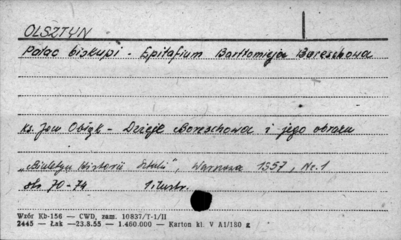 OLSZTYN
Pałac biskupi - Epitafium Bartłomieja Boreschowa
ks. Jan Obłąk - Dzieje Boreschowa i jego obrazu
"Biuletyn Historii Sztuki", Warszawa 1957, Nr. 1
str. 70-74 1 ilustr.
Wzór Kb-156 — CWD, zam. 10837/T-1/II
2445 — Łak —23.8.55 — 1.460.000 — Karton kl. V A1/180 g